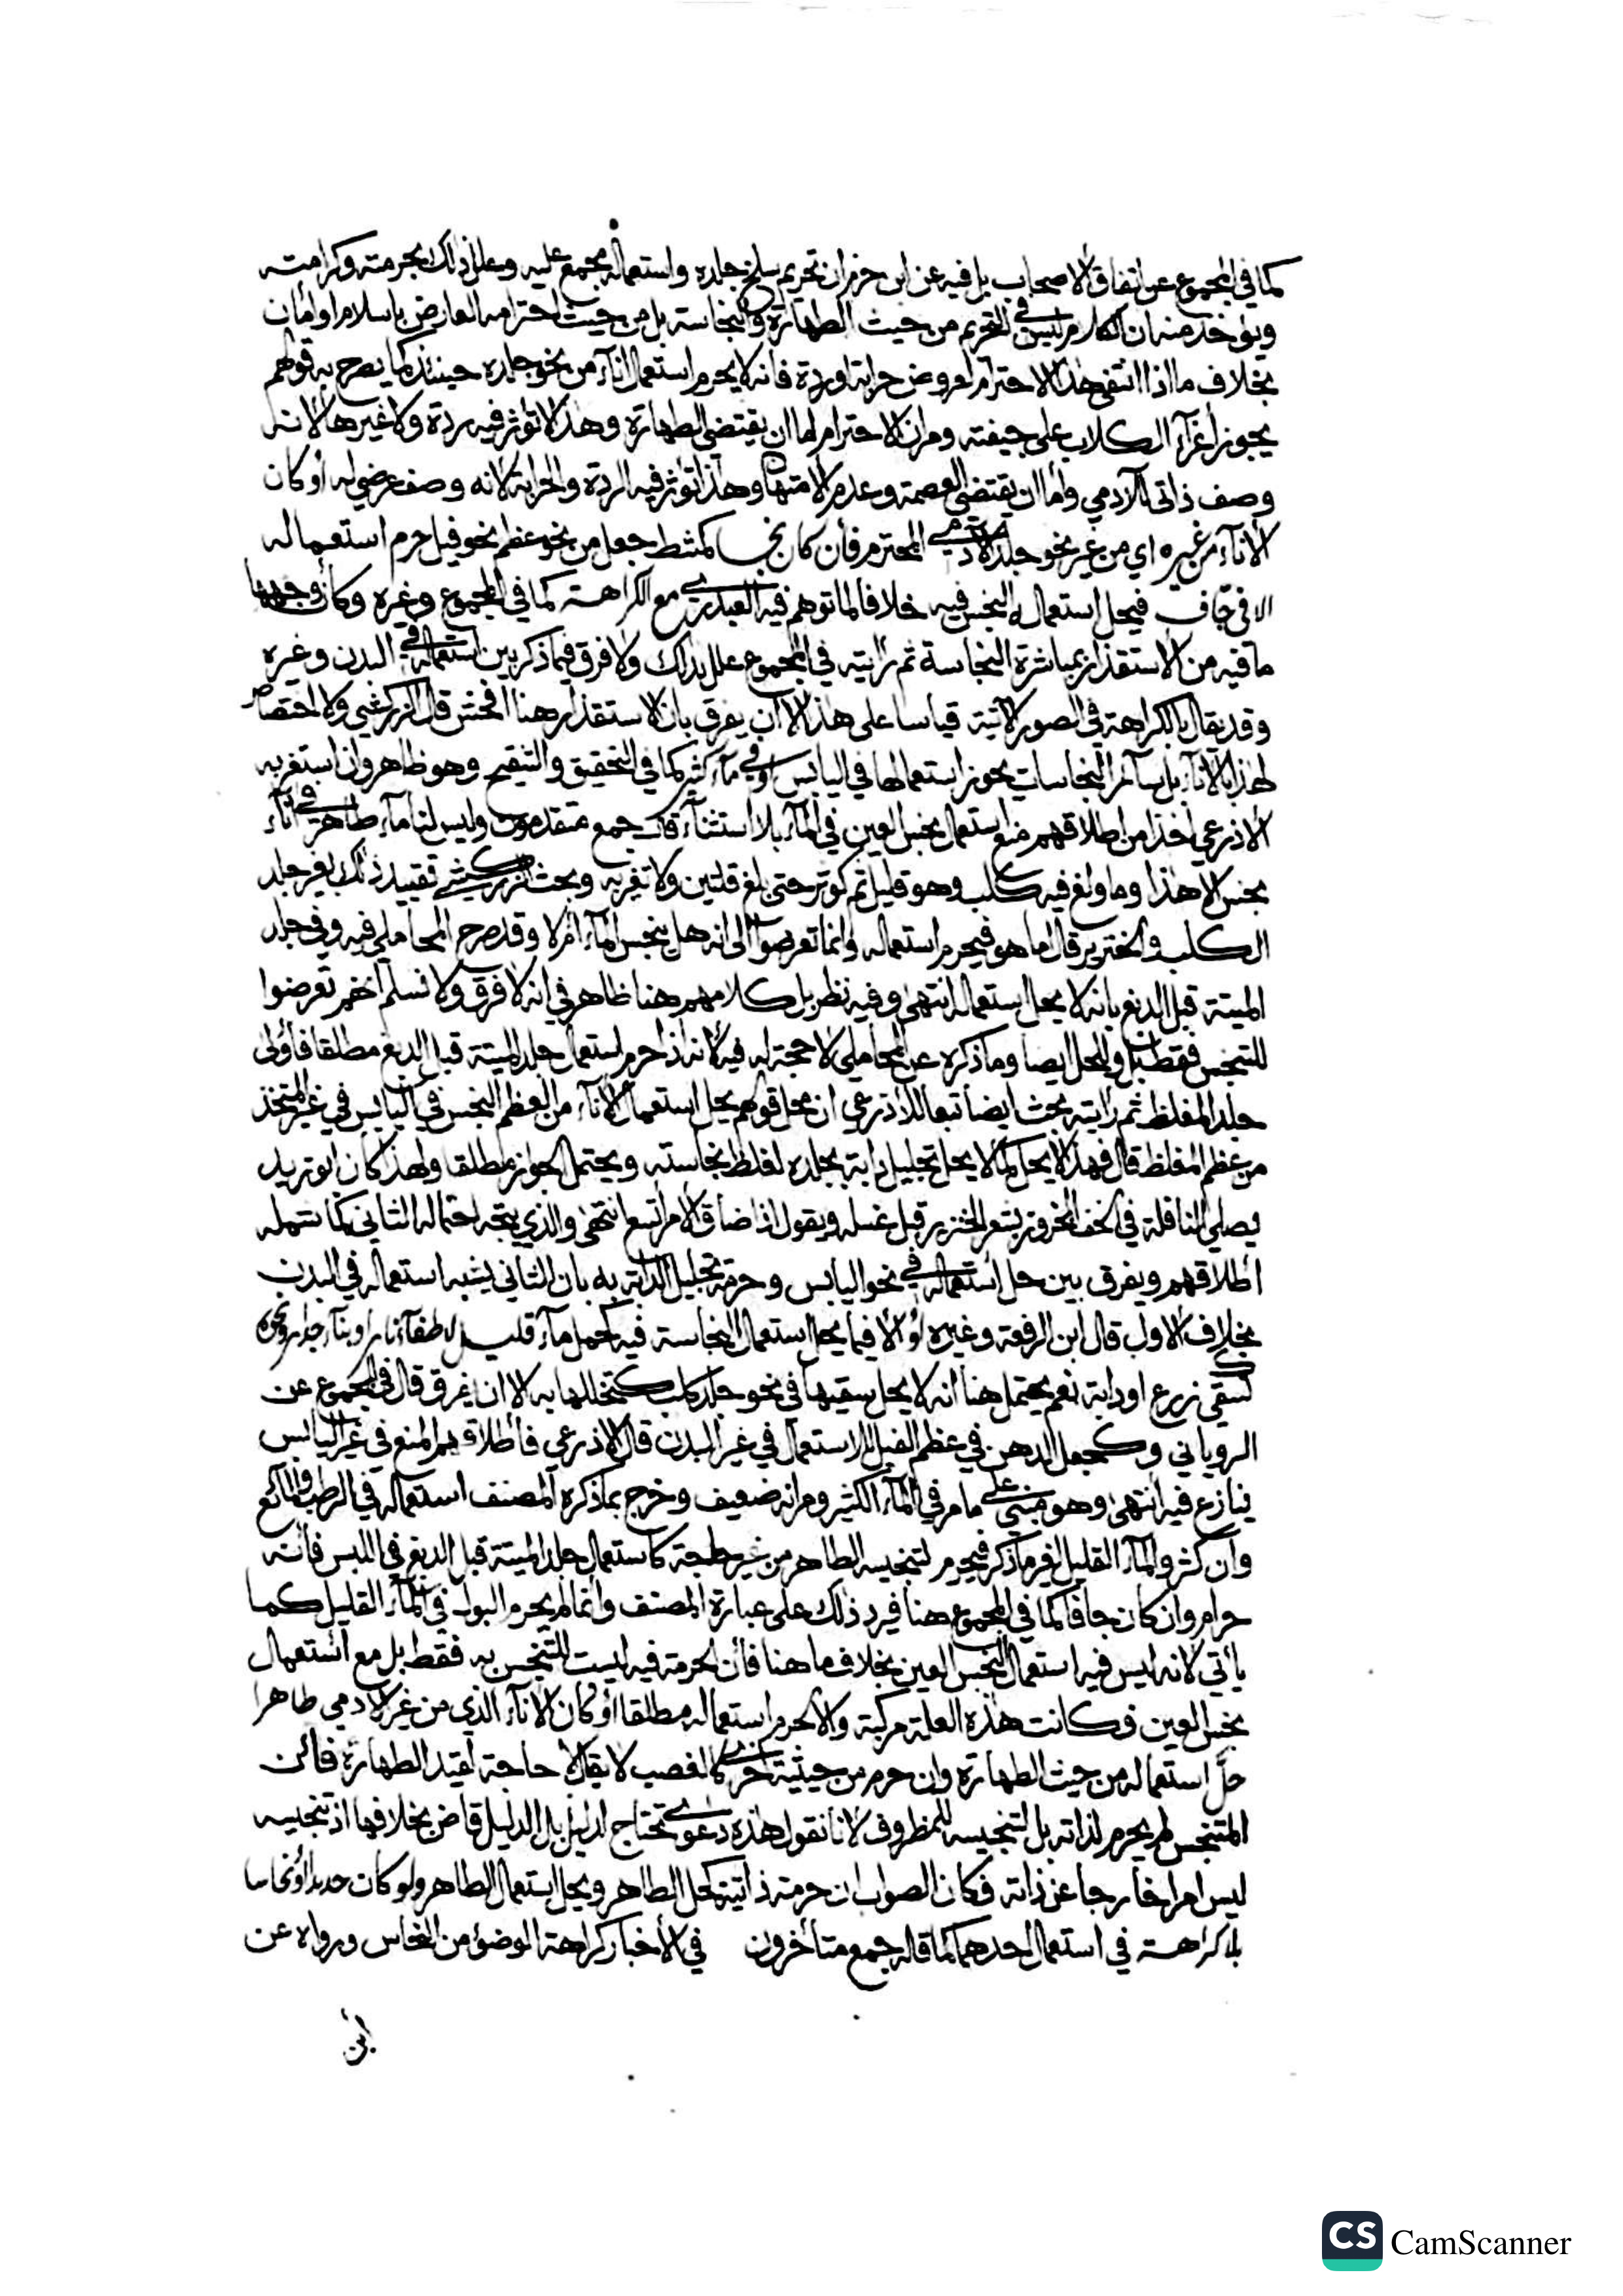 كما في المجموع عن اتفاق الاصحاب بل فيه عن ابن حزم ان تحريم سلخ جلده واستعماله مجمع عليه وعلل ذلك بحرمته وكرامته
ويؤخذ منه ان الكلام ليس في التحريم من حيث الطهارة والنجاسة بل من حيث احترامه العارض باسلام او امان
بخلاف ما اذا انتفى هذا الاحترام لعروض حرابة او ردة فانه لا يحرم استعمال اناء من نحو جلده حينئذ كما يصرح به قولهم
يجوز اغراء الكلاب على جيفته ومر ان الاحترام اما ان يقتضي الطهارة وهذا لا تؤثر فيه ردة ولا غيرها لانه
وصف ذاتي للآدمي واما ان يقتضي العصمة وعدم الامتهان وهذا تؤثر فيه الردة والحرابة لانه وصف عرضي له أو كان
الاناء من غيره اي من غير نحو جلد الآدمي المحترم فأن كان نجسا كمشط جعل من نحو عظم نحو فيل حرم استعماله
الا في جاف فيحل استعمال النجس فيه خلافا لما توهم فيه العبدري مع الكراهة كما في المجموع وغيره وكان وجهها
ما فيه من الاستقذار بمباشرة النجاسة ثم رأيته في المجموع علل بذلك ولا فرق فيما ذكر بين استعماله في البدن وغيره
وقد يقال بالكراهة في الصور الآتية قياسا على هذا الا ان يفرق بان الاستقذار هنا افحش قال الزركشي ولا اختصاص
لهذا بالاناء بل سائر النجاسات يجوز استعمالها في اليابس او في ماء كثير كما في التحقيق والتنقيح وهو ظاهر وان استغربه
الاذرعي اخذا من اطلاقهم منع استعمال نجس العين في الماء بلا استثناء قال جمع متقدمون وليس لنا ماء طاهر في اناء
نجس الا هذا وما ولغ فيه كلب وهو قليل ثم كوثر حتى بلغ قلتين ولا تغير به وبحث الزركشي تقييد ذلك بغير جلد
الكلب والخنزير قال اما هو فيحرم استعماله وانما تعرضوا الى انه هل ينجس الماء ام لا وقد صرح المحاملي فيه وفي جلد
الميتة قبل الدبغ بانه لا يحل استعماله انتهى وفيه نظر بل كلامهم هنا ظاهر في انه لا فرق ولا نسلم انهم تعرضوا
للتنجس فقط بل وللحل ايضا وما ذكره عن المحاملي لا حجة له فيه لانه اذا حرم استعمال جلد الميتة قبل الدبغ مطلقا فأولى
جلد المغلظ ثم رأيته بحث ايضا تبعا للاذرعي ان محل قولهم يحل استعمال الاناء من العظم النجس في اليابس في غير المتخذ
من عظم المغلظ قال فهذا لا يحل كما لا يحل تجليل دابة بجلده لغلظ نجاسته ويحتمل الجواز مطلقا ولهذا كان ابو زيد
يصلي النافلة في الخف المخروز بشعر الخنزير قبل غسله ويقول اذا ضاق الامر اتسع انتهى والذي يتجه احتماله الثاني كما شمله
اطلاقهم ويفرق بين حل استعماله في نحو اليابس وحرمة تجليل الدابة به بان الثاني يشبه استعماله في البدن
بخلاف الاول قال ابن الرفعة وغيره أو الا فيما يحل استعمال النجاسة فيه كحمل ماء قليل لاطفاء نار او بناء جدار ونحوه
كسقي زرع او دابة نعم يحتمل هنا انه لا يحل سقيها في نحو جلد كلب كتجليلها به الا ان يفرق قال في المجموع عن
الروياني وكجعل الدهن في عظم الفيل للاستعمال في غير البدن قال الاذرعي فأطلاقهم المنع في غير اليابس
ينازع فيه انتهى وهو مبني على ما مر في الماء الكثير ومر انه ضعيف وخرج بما ذكره المصنف استعماله في الرطب والمائع
وان كثر والماء القليل لغير ما ذكر فيحرم لتنجيسه الطاهر من غير حاجة كاستعمال جلد الميتة قبل الدبغ في اللبس فأنه
حرام وان كان جافا كما في المجموع هنا فيرد ذلك على عبارة المصنف وانما لم يحرم البول في الماء القليل كما
يأتي لانه ليس فيه استعمال النجس العين بخلاف ما هنا فأن الحرمة فيه ليست للتنجس به فقط بل مع استعمال
نجس العين فكانت هذه العلة مركبة والا لحرم استعماله مطلقا أو كان الاناء الذي من غير الآدمي طاهرا
حل استعماله من حيث الطهارة وان حرم من حيثية اخرى كالغصب لا يقال لا حاجة لقيد الطهارة فائن
المتنجس لم يحرم لذاته بل لتنجيسه للمظروف لانا نقول هذه دعوى تحتاج لدليل بل الدليل قاض بخلافها اذ تنجيسه
ليس امرا خارجا عن ذاته فكان الصواب ان حرمته ذاتية كحل الطاهر ويحل استعمال الطاهر ولو كان حديدا او نحاسا
بلا كراهة في استعمال احدهما كما قاله جمع متأخرون في الأخبار كراهة الوضوء من النحاس ورواه عن
ابن
CS CamScanner